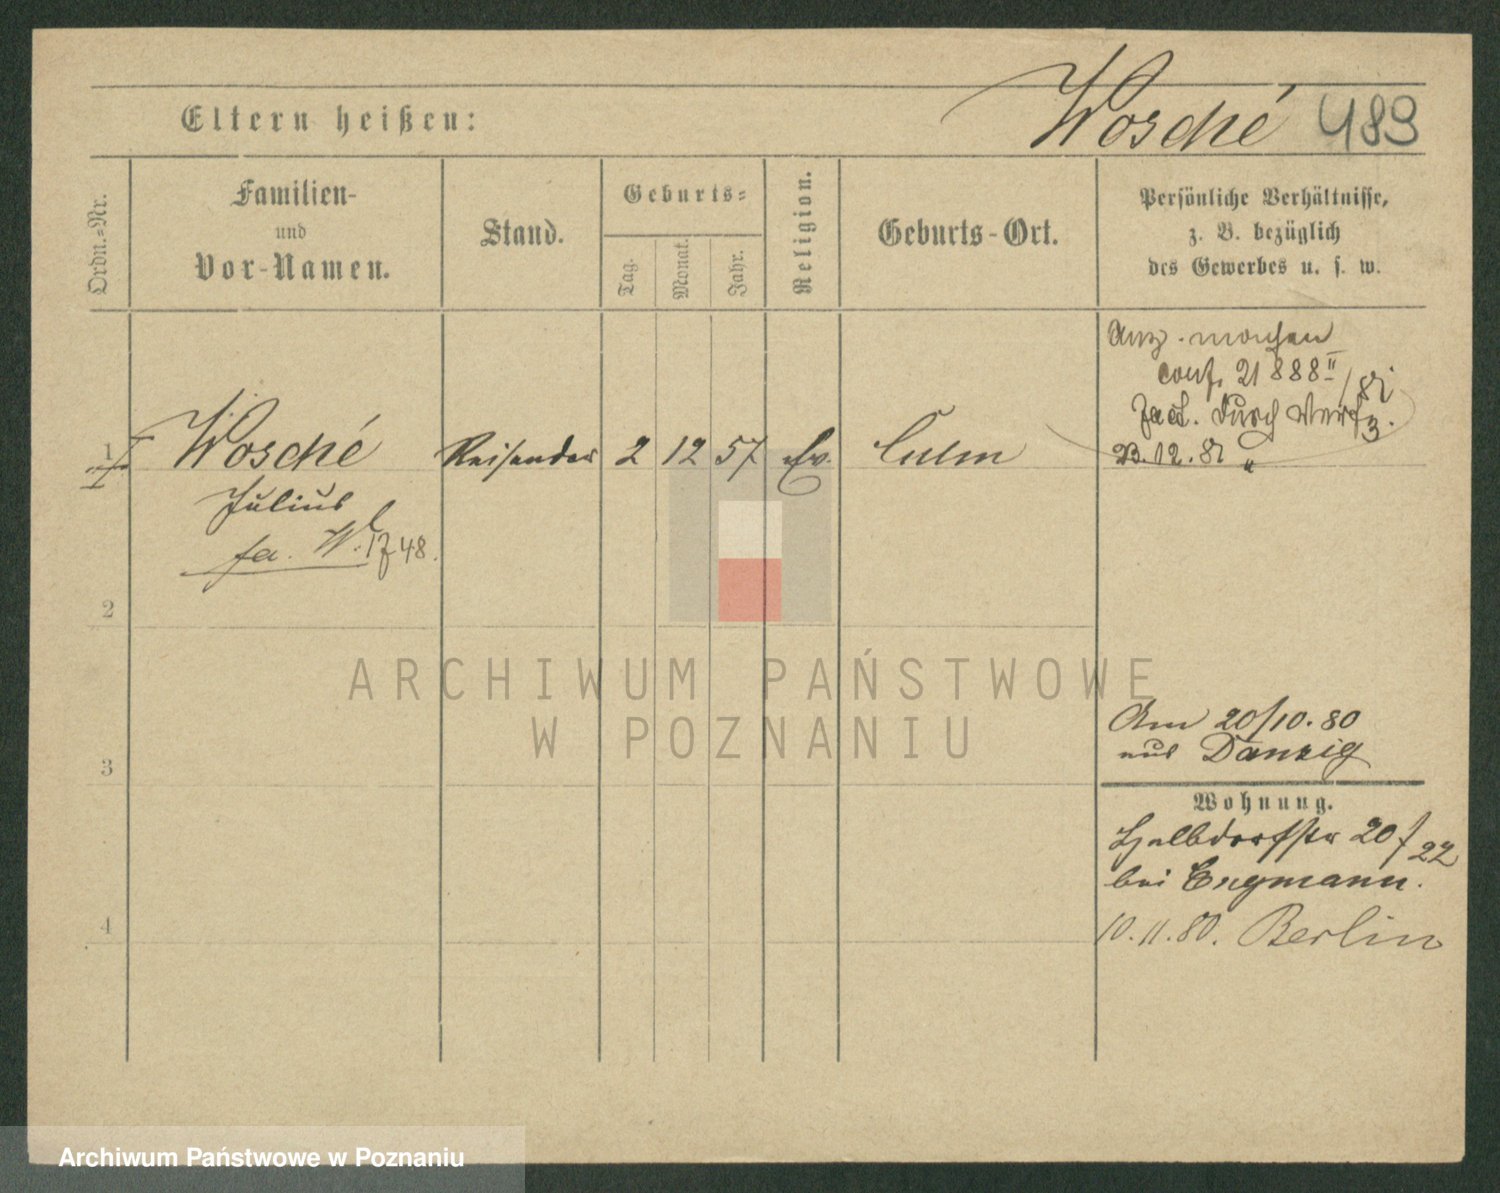 Wosché 489
Eltern heißen:
Ordn.=Nr.
Familien-
und
Vor-Namen.
Stand.
Geburts=
Tag.
Monat.
Jahr.
Religion.
Geburts-Ort.
Persönliche Verhältnisse,
z. B. bezüglich
des Gewerbes u. s. w.
conf. 21888 II/81
durch
23.12.81
1 Wosché Reisender 2 12 57 Ev. Culm
Julius
fa. W. 48.
2
3
4
Am 20/10.80
aus Danzig
Wohnung.
Halbdorfstr 20/22
bei Bergmann.
10.11.80. Berlin
ARCHIWUM PAŃSTWOWE
W POZNANIU
Archiwum Państwowe w Poznaniu